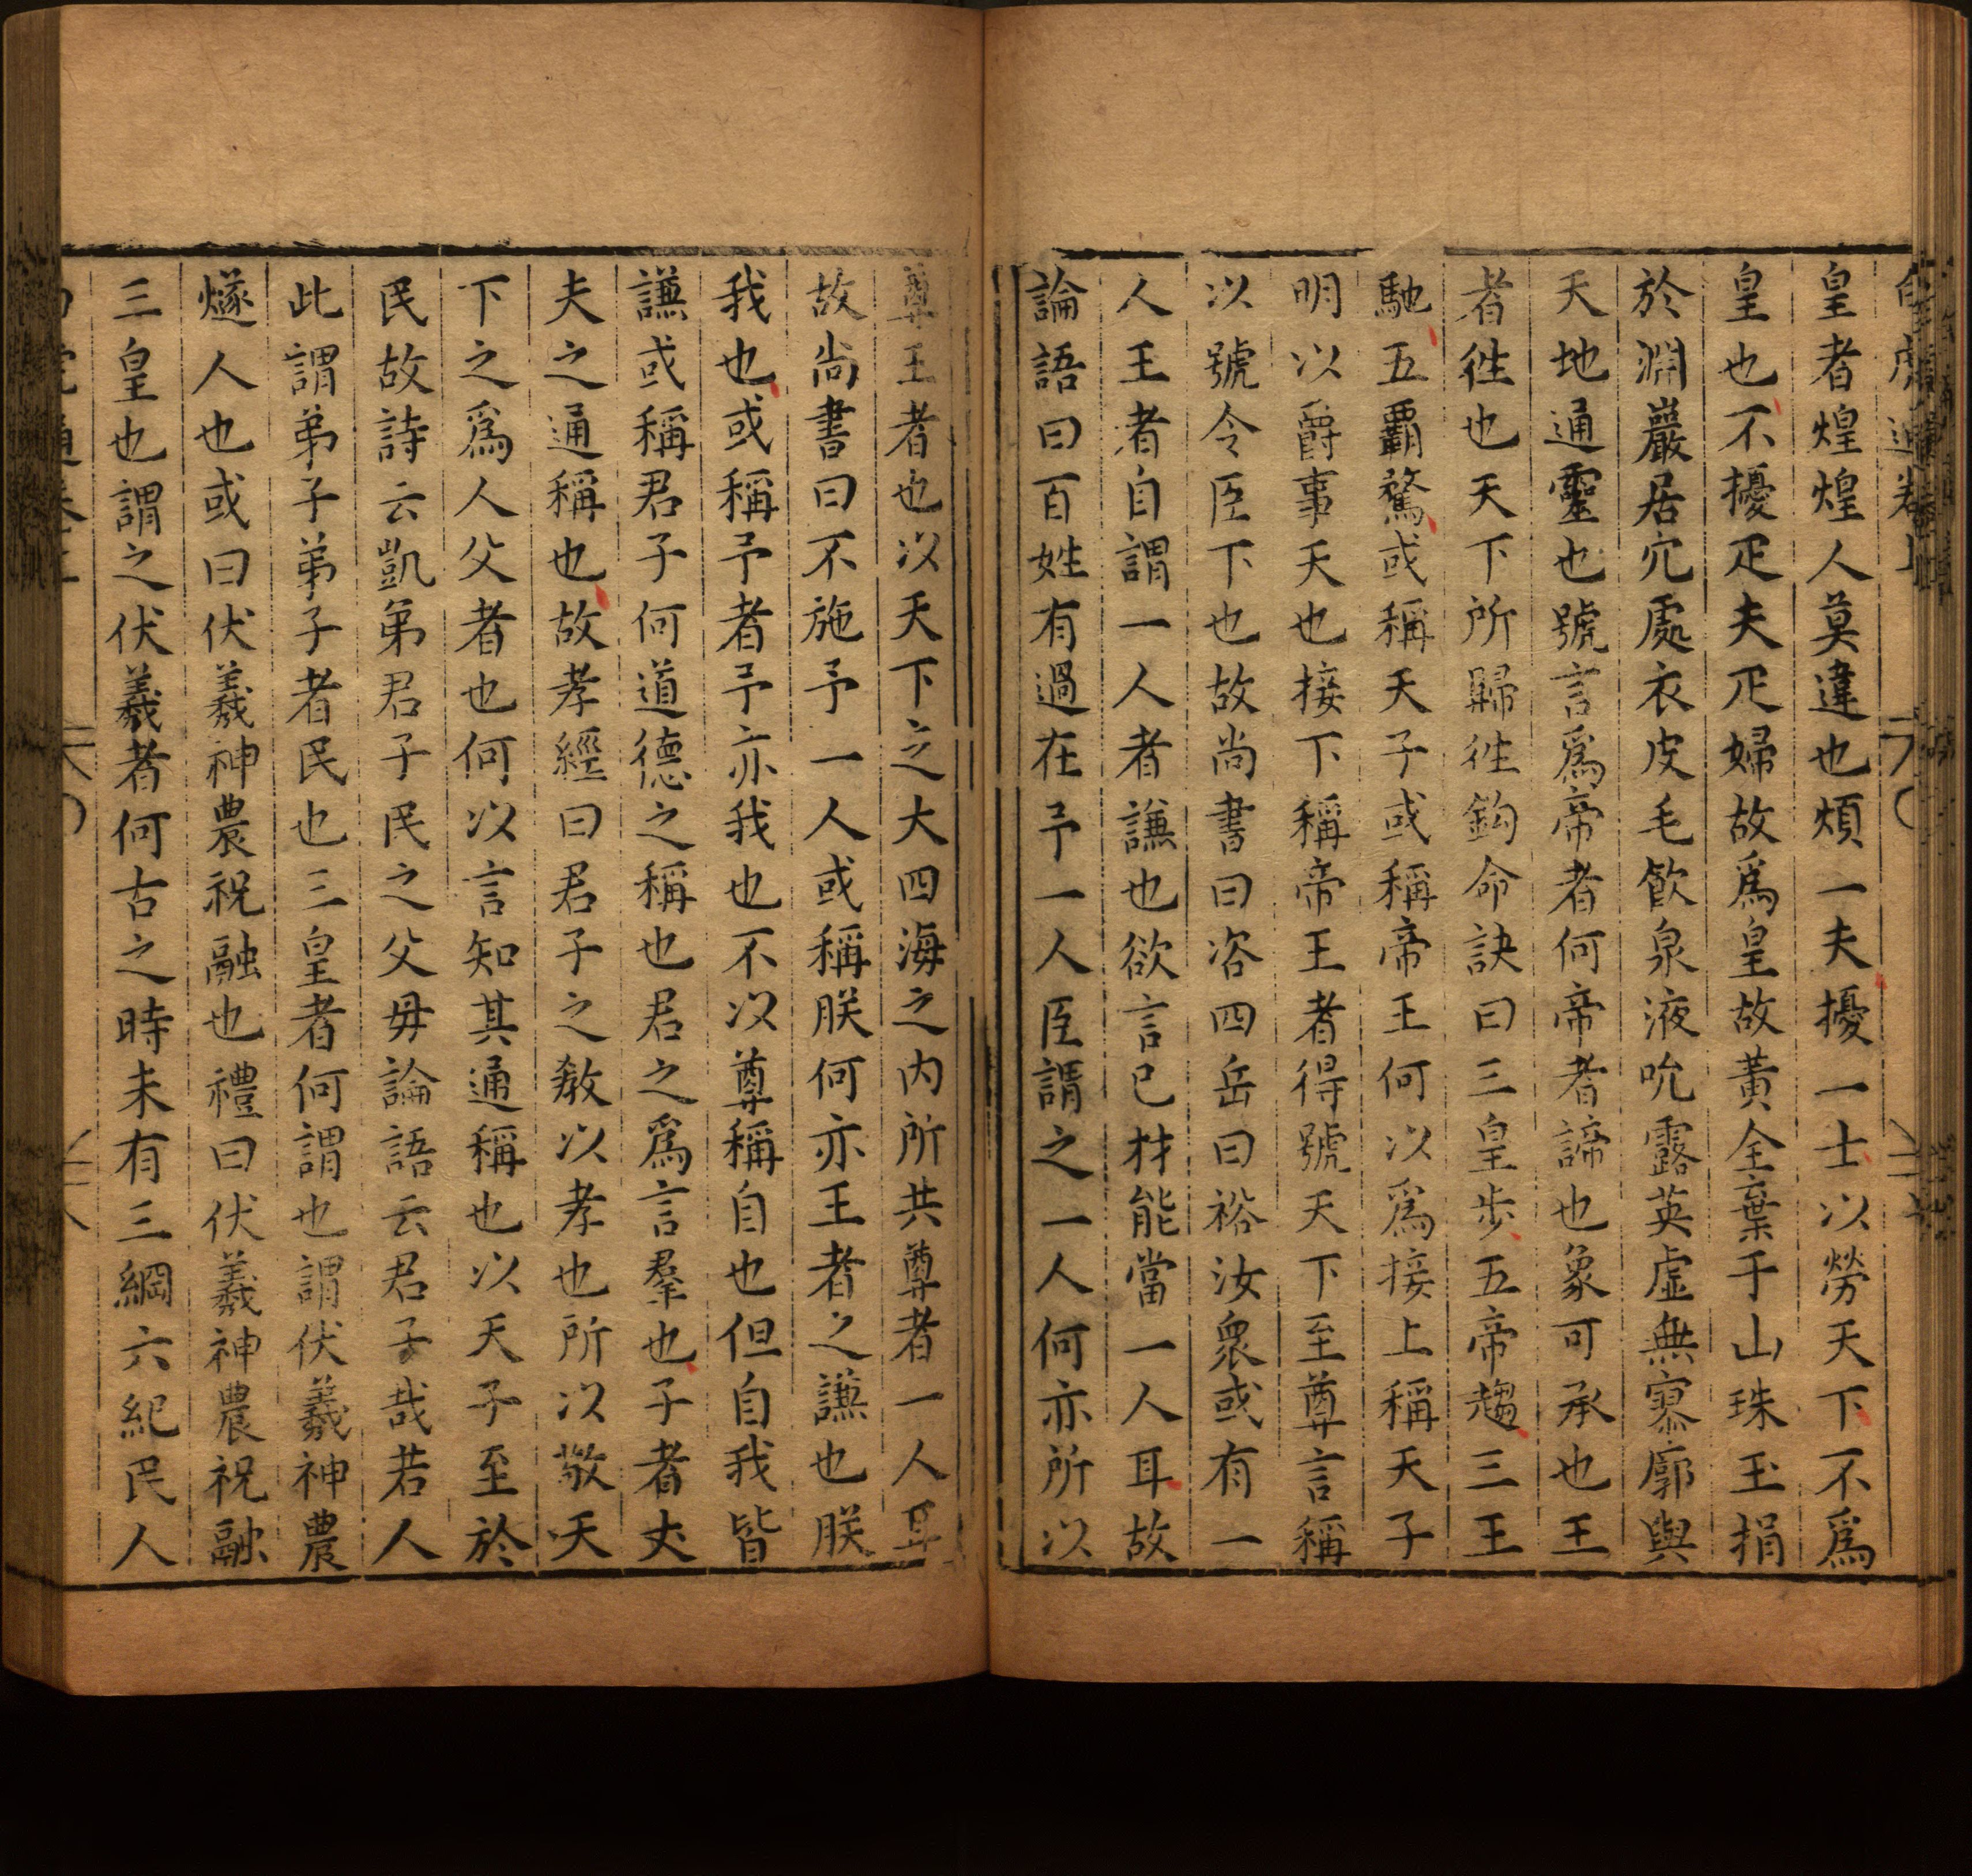 白虎通卷上
皇者煌煌人莫違也煩一夫擾一士以勞天下不爲
皇也不擾疋夫疋婦故爲皇故黃金棄于山珠玉捐
於淵巖居穴處衣皮毛飮泉液吮露英虛無寥廓與
天地通靈也號言爲帝者何帝者諦也象可承也王
者徃也天下所歸徃鈎命訣曰三皇步五帝趨三王
馳五覇騖或稱天子或稱帝王何以爲接上稱天子
明以爵事天也接下稱帝王者得號天下至尊言稱
以號令臣下也故尚書曰咨四岳曰裕汝衆或有一
人王者自謂一人者謙也欲言己材能當一人耳故
論語曰百姓有過在予一人臣謂之一人何亦所以
尊王者也以天下之大四海之内所共尊者一人耳
故尚書曰不施予一人或稱朕何亦王者之謙也朕
我也或稱予者予亦我也不以尊稱自也但自我皆
謙或稱君子何道德之稱也君之爲言羣也子者丈
夫之通稱也故孝經曰君子之敎以孝也所以敬天
下之爲人父者也何以言知其通稱也以天子至於
民故詩云凱弟君子民之父毋論語云君子哉若人
此謂弟子弟子者民也三皇者何謂也謂伏羲神農
燧人也或曰伏羲神農祝融也禮曰伏羲神農祝融
三皇也謂之伏羲者何古之時未有三綱六紀民人